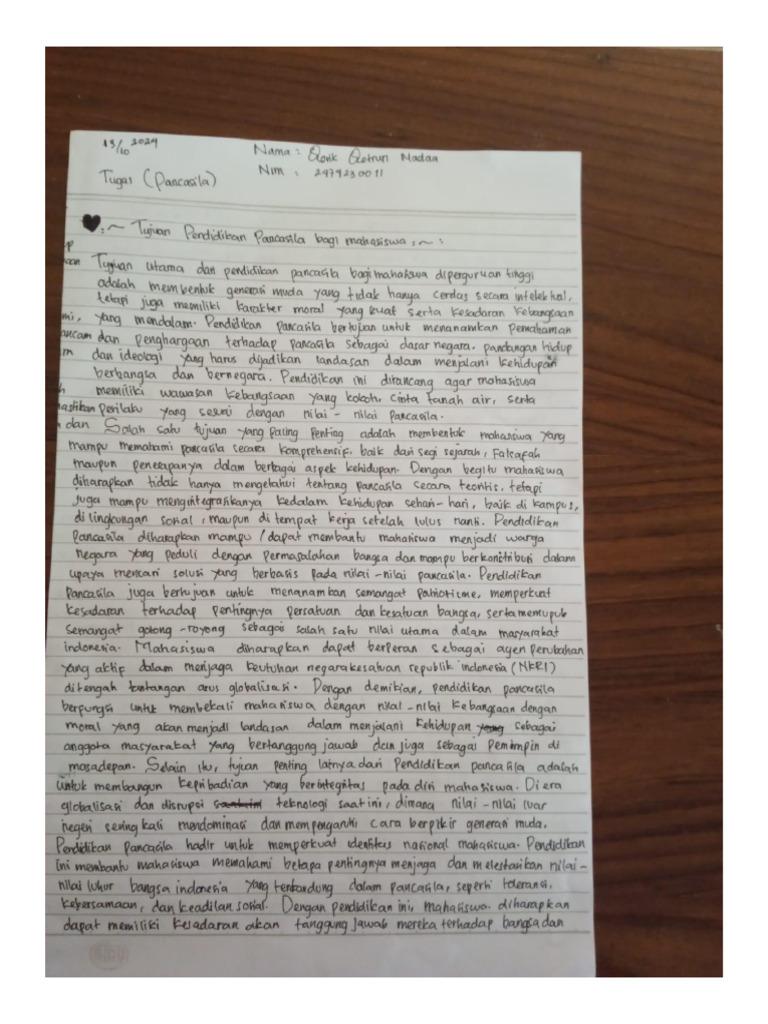 13/10 2024
Nama : Qorik Qotrun Nadaa
Nim : 2474230011
Tugas (Pancasila)
Tujuan Pendidikan Pancasila bagi mahasiswa
Tujuan utama dan pendidikan pancasila bagi mahasiswa diperguruan tinggi
adalah membentuk generasi muda yang tidak hanya cerdas secara intelektual,
tetapi juga memiliki karakter moral yang kuat serta kesadaran Kebangsaan
yang mendalam. Pendidikan Pancasila bertujuan untuk menanamkan Pemahaman
dan penghargaan terhadap pancasila sebagai dasar negara, pandangan hidup
dan ideologi yang harus dijadikan landasan dalam menjalani kehidupan
berbangsa dan bernegara. Pendidikan ini dirancang agar mahasiswa
memiliki wawasan kebangsaan yang kokoh, cinta tanah air, serta
Perilaku yang sesuai dengan nilai - nilai Pancasila.
Salah satu tujuan yang paling penting adalah membentuk mahasiswa yang
mampu memahami pancasila secara komprehensif, baik dari segi sejarah, Falsafah
maupun penerapanya dalam berbagai aspek kehidupan. Dengan begitu mahasiswa
diharapkan tidak hanya mengetahui tentang pancasila secara teoritis, tetapi
juga mampu mengintegrasikanya kedalam kehidupan sehari-hari, baik di kampus,
di lingkungan sosial, maupun di tempat kerja setelah lulus nanti. Pendidikan
Pancasila diharapkan mampu / dapat membantu mahasiswa menjadi warga
negara yang peduli dengan permasalahan bangsa dan mampu berkontribusi dalam
upaya mencari solusi yang berbasis pada nilai-nilai pancasila. Pendidikan
Pancasila juga bertujuan untuk menanamkan semangat patriotisme, memperkuat
kesadaran terhadap pentingnya persatuan dan kesatuan bangsa, serta memupuk
semangat gotong-royong sebagai salah satu nilai utama dalam masyarakat
indonesia. Mahasiswa diharapkan dapat berperan sebagai agen perubahan
yang aktif dalam menjaga keutuhan negara kesatuan republik indonesia (NKRI)
ditengah tantangan arus globalisasi. Dengan demikian, pendidikan pancasila
berfungsi untuk membekali mahasiswa dengan nilai-nilai kebangsaan dengan
moral yang akan menjadi landasan dalam menjalani kehidupan yang sebagai
anggota masyarakat yang bertanggung jawab dan juga sebagai Pemimpin di
masadepan. Selain itu, tujuan penting latnya dari Pendidikan pancasila adalah
untuk membangun kepribadian yang berintegritas pada diri mahasiswa. Di era
globalisasi dan disrupsi teknologi saat ini, dimana nilai-nilai luar
negeri seringkali mendominasi dan mempengaruhi cara berpikir generasi muda.
Pendidikan Pancasila hadir untuk memperkuat identitas nasional mahasiswa. Pendidikan
ini membantu mahasiswa memahami betapa pentingnya menjaga dan melestarikan nilai-
nilai luhur bangsa indonesia yang terkandung dalam pancasila, seperti toleransi,
kebersamaan, dan keadilan sosial. Dengan pendidikan ini, mahasiswa diharapkan
dapat memiliki kesadaran akan tanggung jawab mereka terhadap bangsa dan